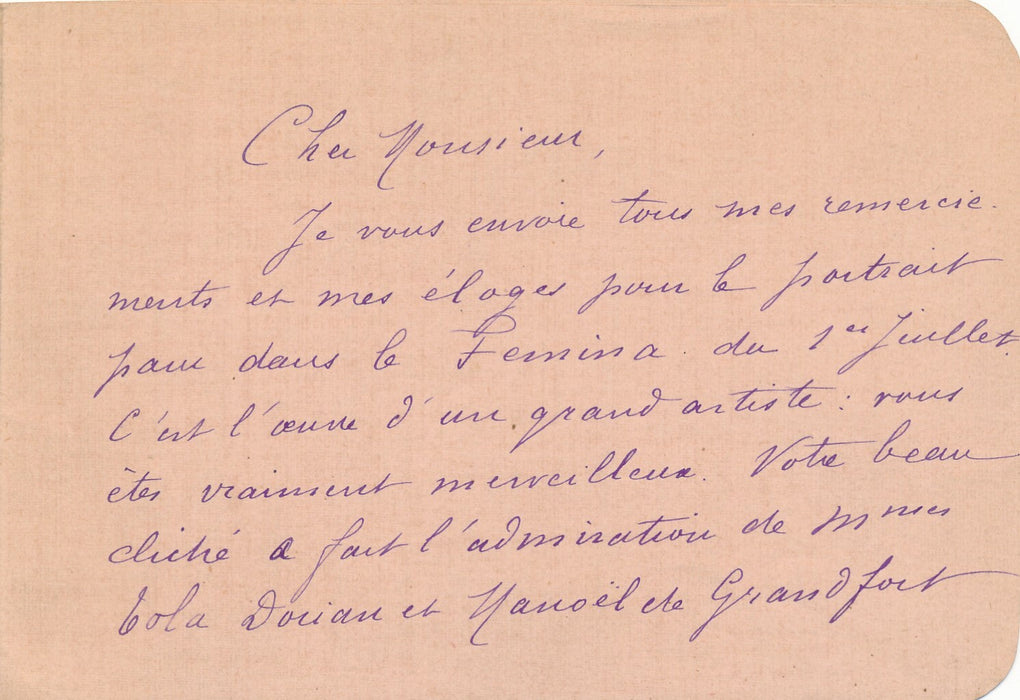 Cher Monsieur,
Je vous envoie tous mes remercie-
ments et mes éloges pour le portrait
paru dans le Femina du 1er Juillet.
C'est l'œuvre d'un grand artiste : vous
êtes vraiment merveilleux. Votre beau
cliché a fait l'admiration de Mmes
Tola Dorian et Manoël de Grandfort